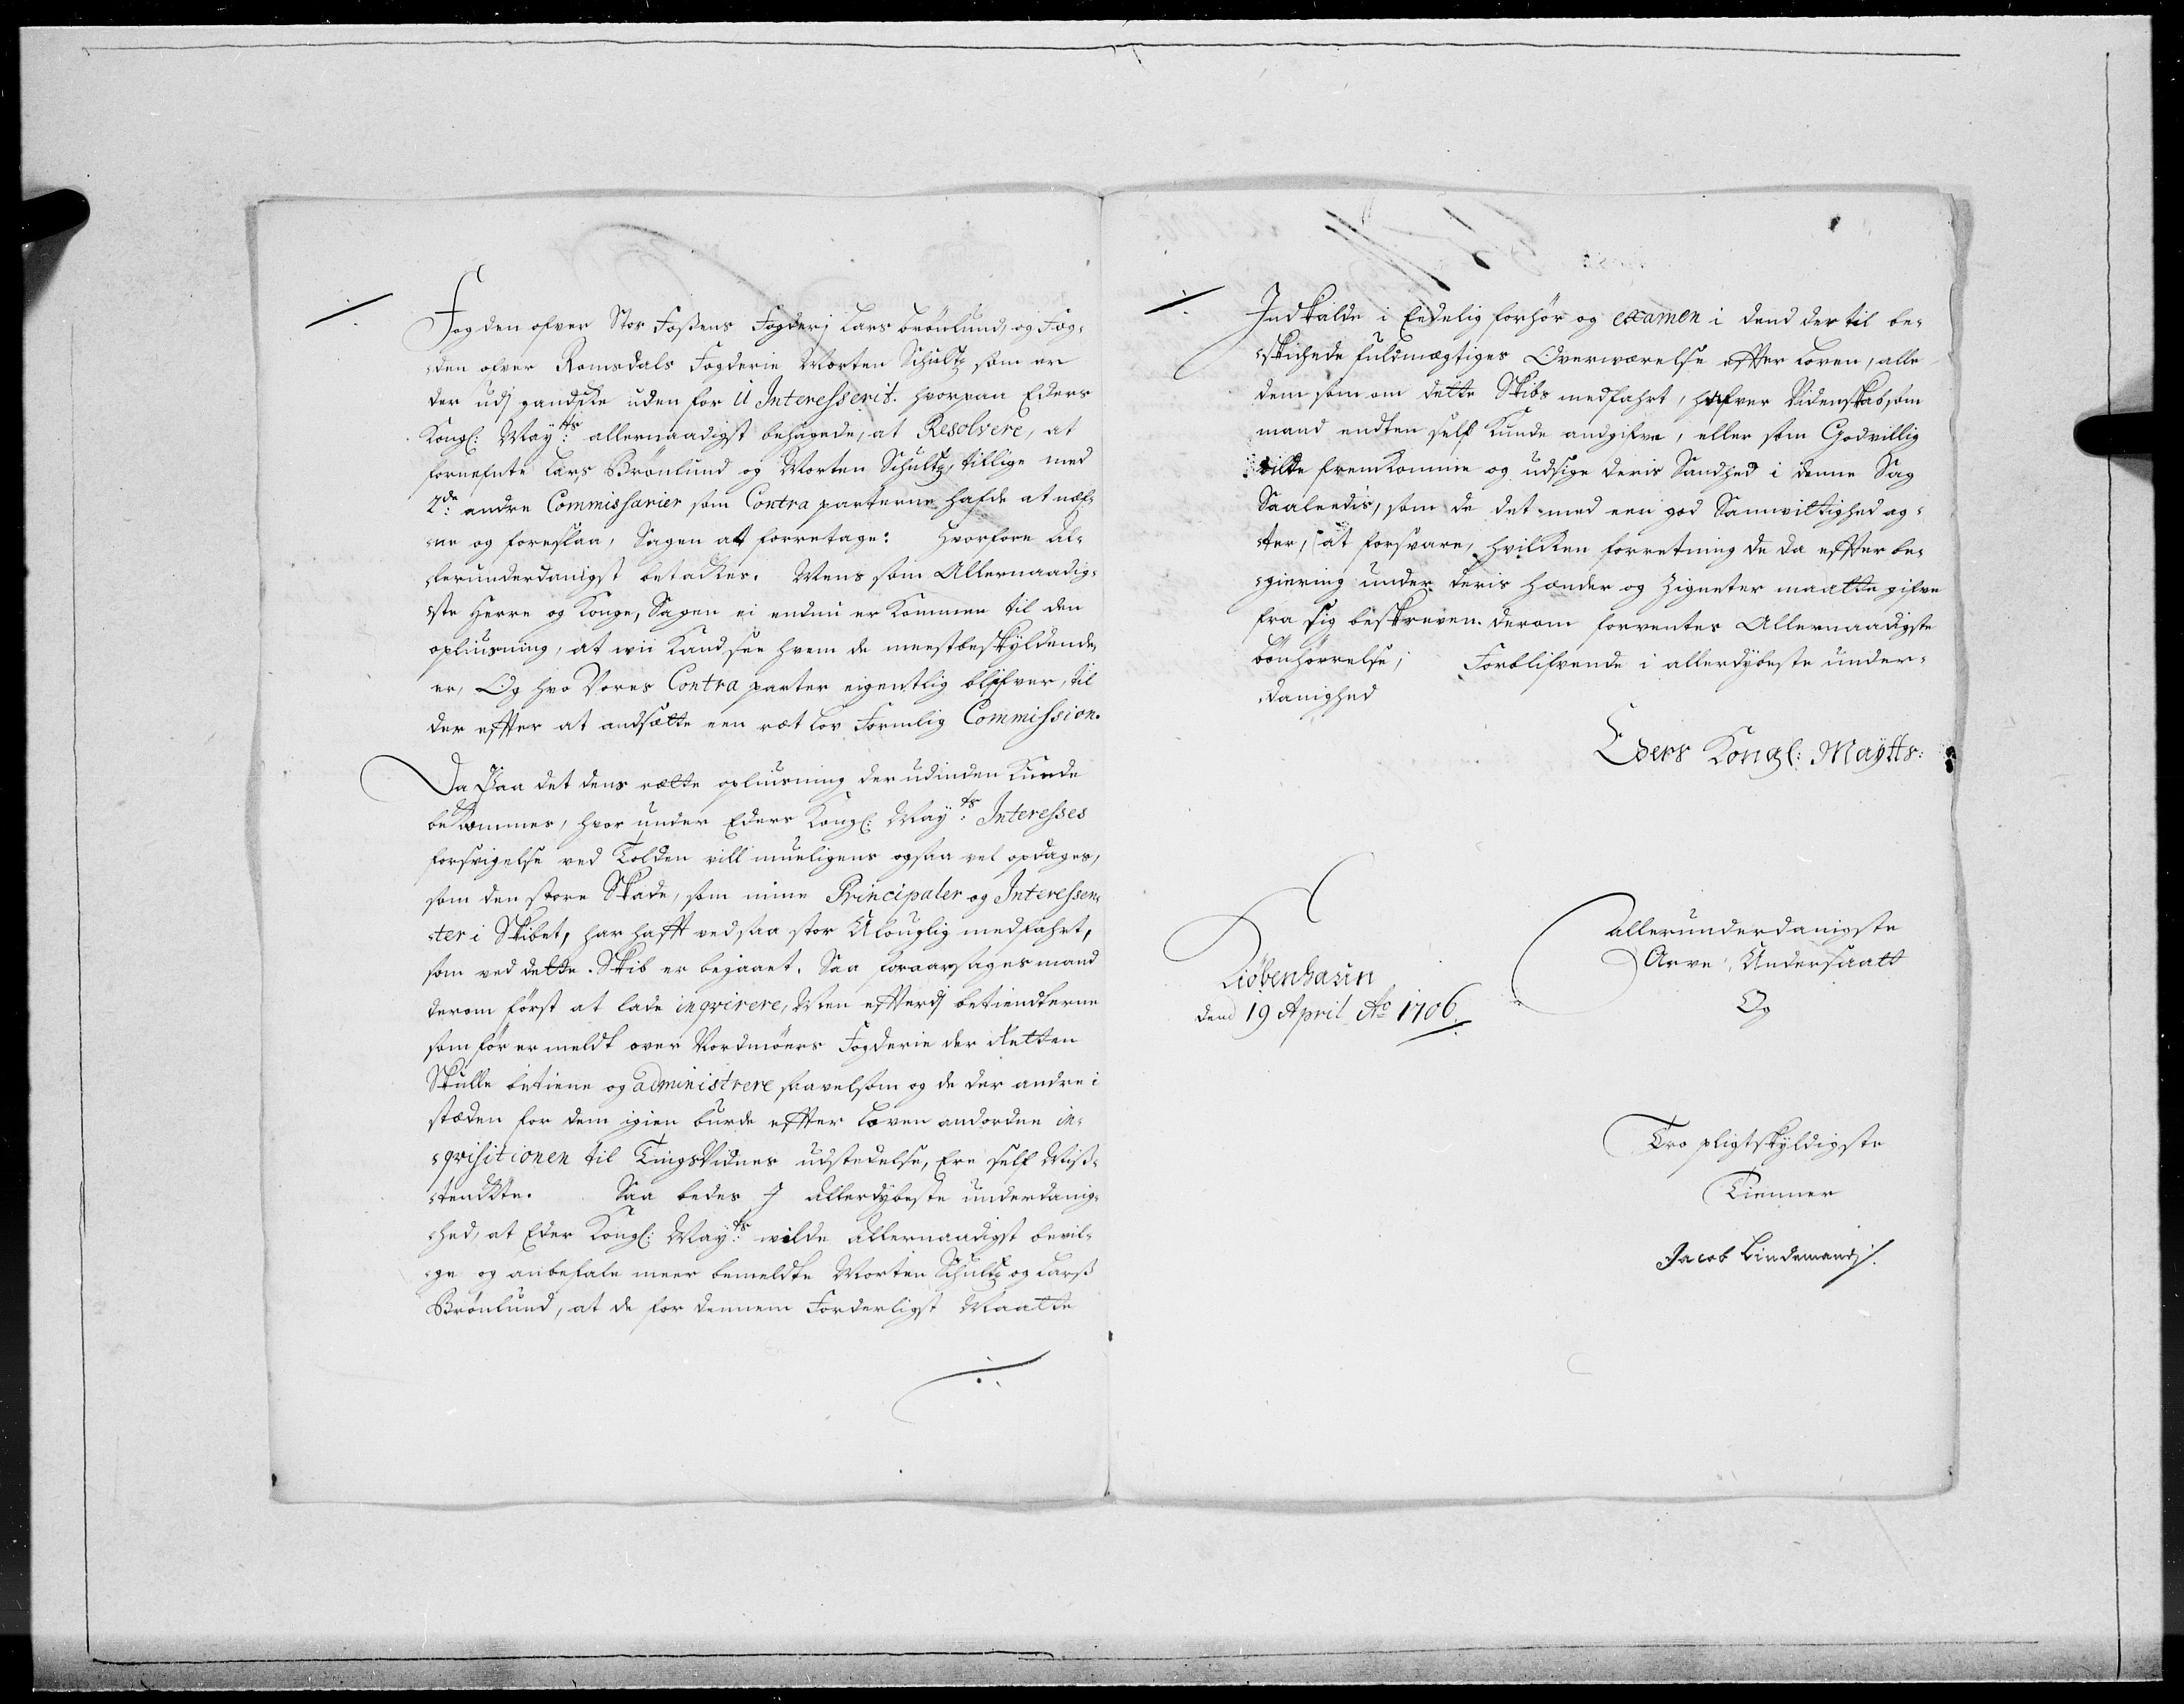 Fogden ofver Stor Foßens Fogderj Lars Brönlund, og Fog-
den ofver Romsdals Fogderie Morten Schultz som er
der udj gandske uden for U Interesserit. hvorpaa Eders
Kongl: May:ts allernaadigst behagede, at Resolvere, at
fornefnte Lars Brönlund og Morten Schultz, tillige med
2de: andre Commissarier som Contra parterne hafde at nef-
ne og foreslaa, Sagen at forretage: Hvorfore Al-
lerunderdanigst betackes. Mens som Allernaadig-
ste Herre og Konge, Sagen ei endnu er Kommen til den
opliusning, at wii Kand see hvem de meest beskyldende
er, Og hvo Vores Contra parter eigentlig blifver, til
der effter at andsætte een ræt Lov Formlig Commission.
Da Paa det dens rætte opliusning der udinden Kunde
beKommes, hvor under Eders Kongl: May:ts Interesses
forsvigelse ved Tolden vill mueligens ogsaa vel opdages,
som den store Skade, som mine Principaler og Interessen-
ter i Skibet, har hafft ved saa stor Ulouglig medfahrt,
som ved dette Skib er begaaet. Saa foraarsages mand
derom först at lade inqvirere, Men efftersom betiendterne
som för er meldt over Nordmöers Fogderie der Retten
Skulle betiene og administrere saavelsom og de der andre i
stæden for dem igien burde effter Loven andordne in-
qvisitionen til TingsVidnes udstedelse, Ere self Miß-
tenckte. Saa bedes J allerdybeste underdanig-
hed, at Eder Kongl: May:ts wilde allernaadigst bevil-
ge og anbefale meer bemeldte Morten Schultz og Larß
Brönlund, at de for dennem Forderligst Maatte
Indkalde i Eedelig forhör og examen i dend der til be-
skickede fuldmægtiges Overværelse effter Loven, alle
dem som om dette Skibs medfahrt, hafver Videnskab, som
mand endten self Kunde andgifve, eller som Godvillig
vilde fremKomme og udsige deris Sandhed i denne Sag
Saaleedis, som de det med een god Samvittighed ag-
ter, at forsvare, hvilcken forretning de da effter be-
giering under deris Hænder og Zigneter maatte gifve
fra sig beskreven. derom forventes Allernaadigste
bönhörrelse; Forblifvende i allerdybeste under-
danighed
Eders Kongl: Maÿtts:
Kiöbenhaun
dend 19 April Ao 1706
allerunderdanigste
Arve Undersaatt
Og
Tro pligtskyldigste
Tienner
Jacob Lindemand